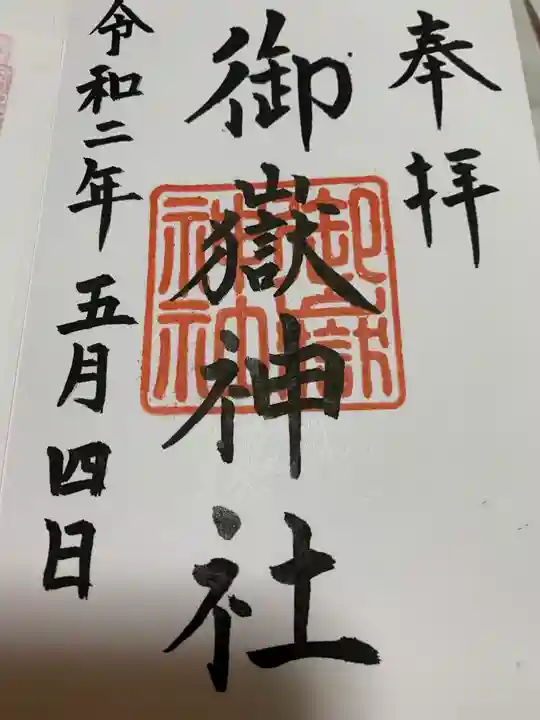 奉拝
御嶽神社
御嶽神社
令和二年五月四日